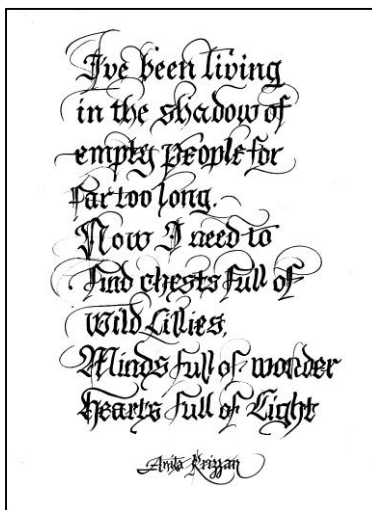 I've been living
in the shadow of
empty people for
far too long.
Now I need to
find chests full of
Wild Lillies,
Minds full of wonder
Hearts full of Light
Anita Krizzan